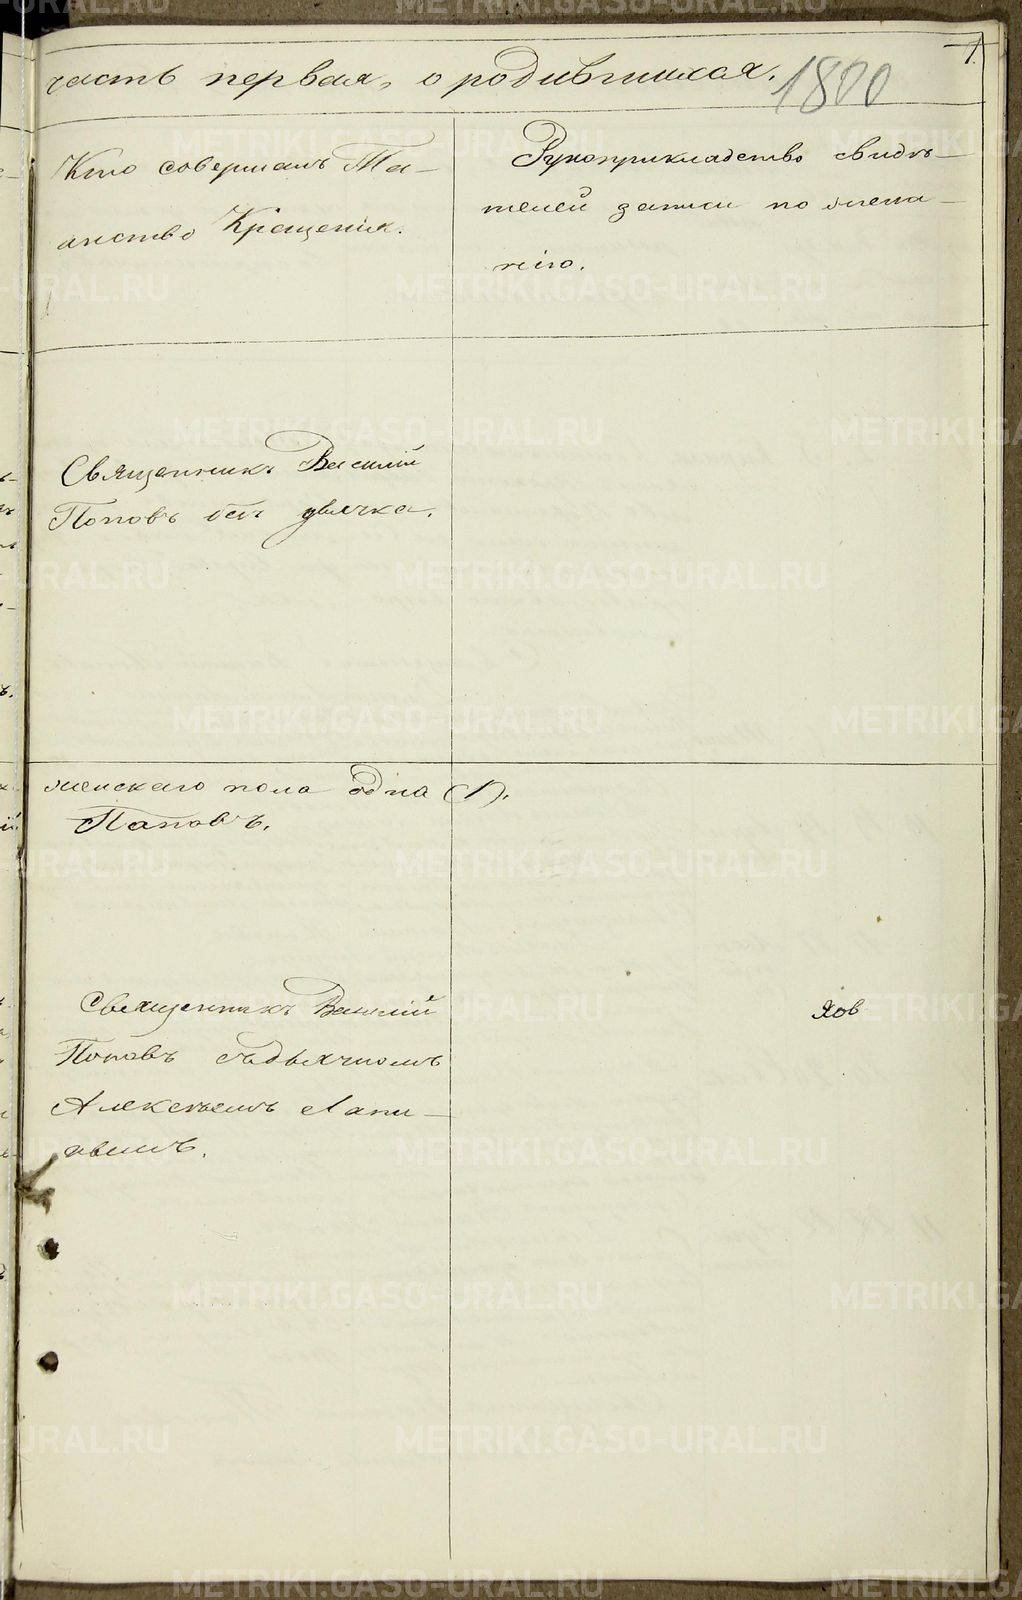 часть первая, о родившихся. 1800
1
Кто совершалъ Та-
инство Крещенія.
Рукоприкладство свидѣ-
телей записи по жела-
нію.
Священникъ Василій
Поповъ безъ дьячка.
женскаго пола одна (1).
Поповъ.
Священникъ Василій
Поповъ съ дьячкомъ
Алексѣемъ Лапи-
хов